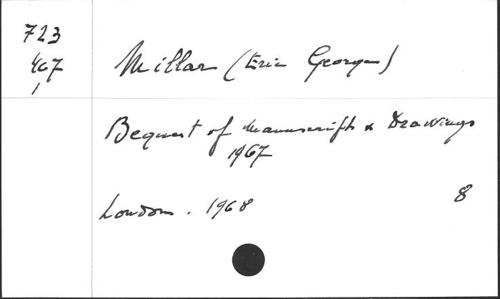 723
467
1
Millar (Eric George)
Bequest of Manuscripts & Drawings
1967
London. 1968
8